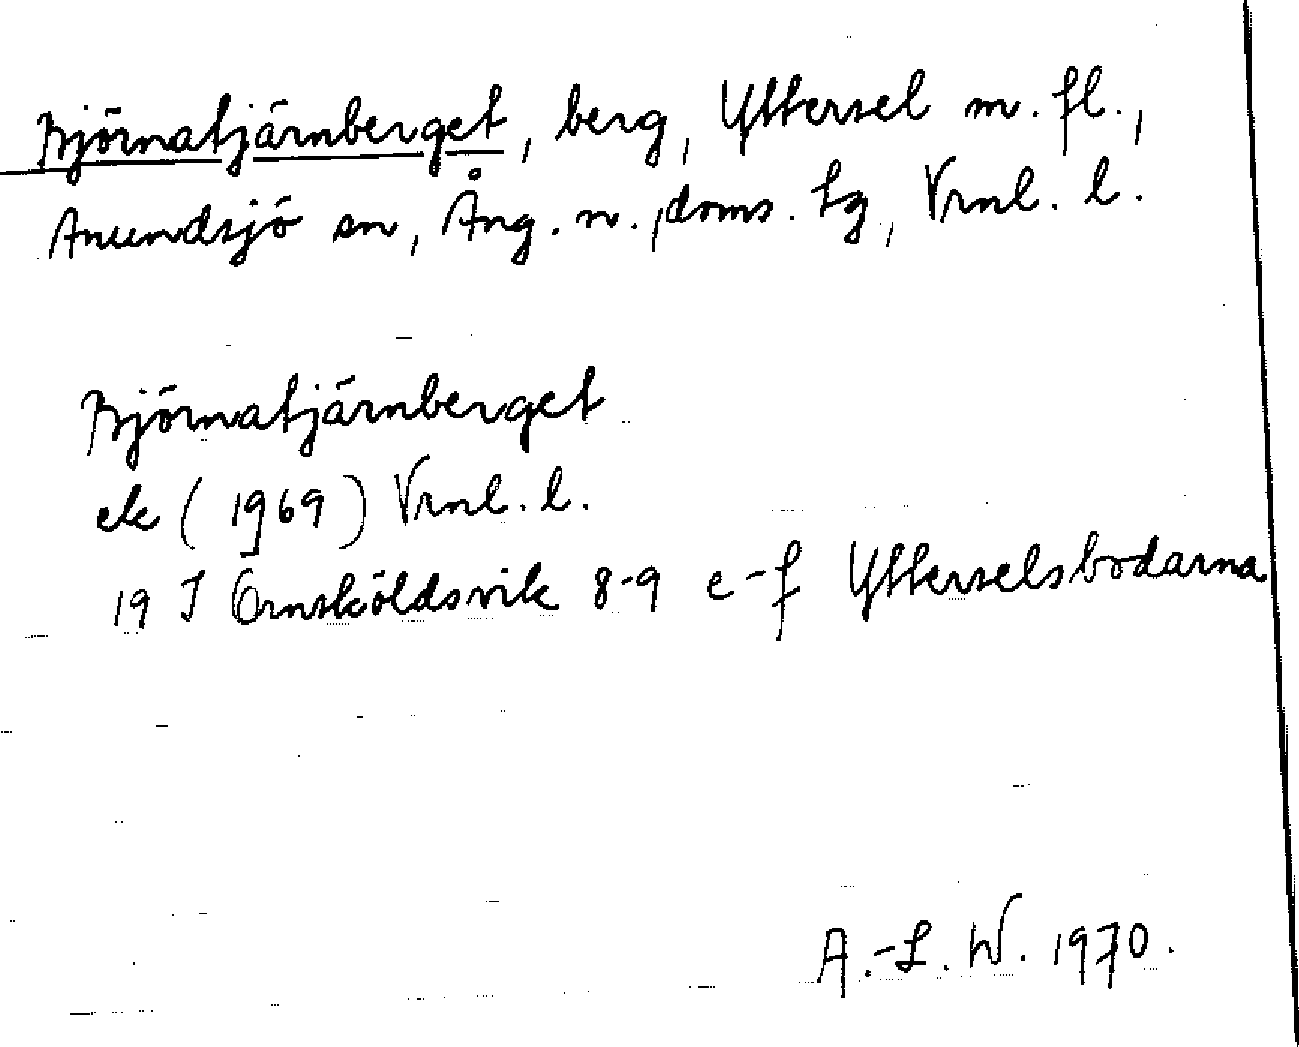 Björnatjärnberget, berg, Yttersel m. fl.,
Anundsjö sn, Ång. n. doms. lg, Vrnl. l.
Björnatjärnberget
ek (1969) Vrnl. l.
19 J Örnsköldsvik 8-9 e-f Ytterselsbodarna
A.-L. W. 1970.